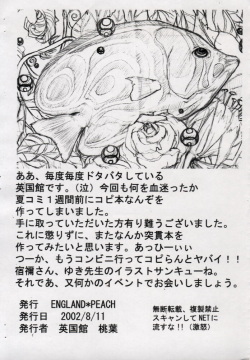 ああ、毎度毎度ドタバタしている
英国館です。(泣)今回も何を血迷ったか
夏コミ1週間前にコピ本なんぞを
作ってしまいました。
手に取っていただいた方有り難うございました。
これに懲りずに、またなんか突貫本を
作ってみたいと思います。あっひーぃぃ
つーか、もうコンビニ行ってコピらんとヤバイ!!
宿禰さん、ゆき先生のイラストサンキューね。
それであ、又何かのイベントでお会いしましょう。
発行 ENGLAND*PEACH
発行日 2002/8/11
発行者 英国館 桃葉
無断転載、複製禁止
スキャンしてNETに
流すな!!(激怒)